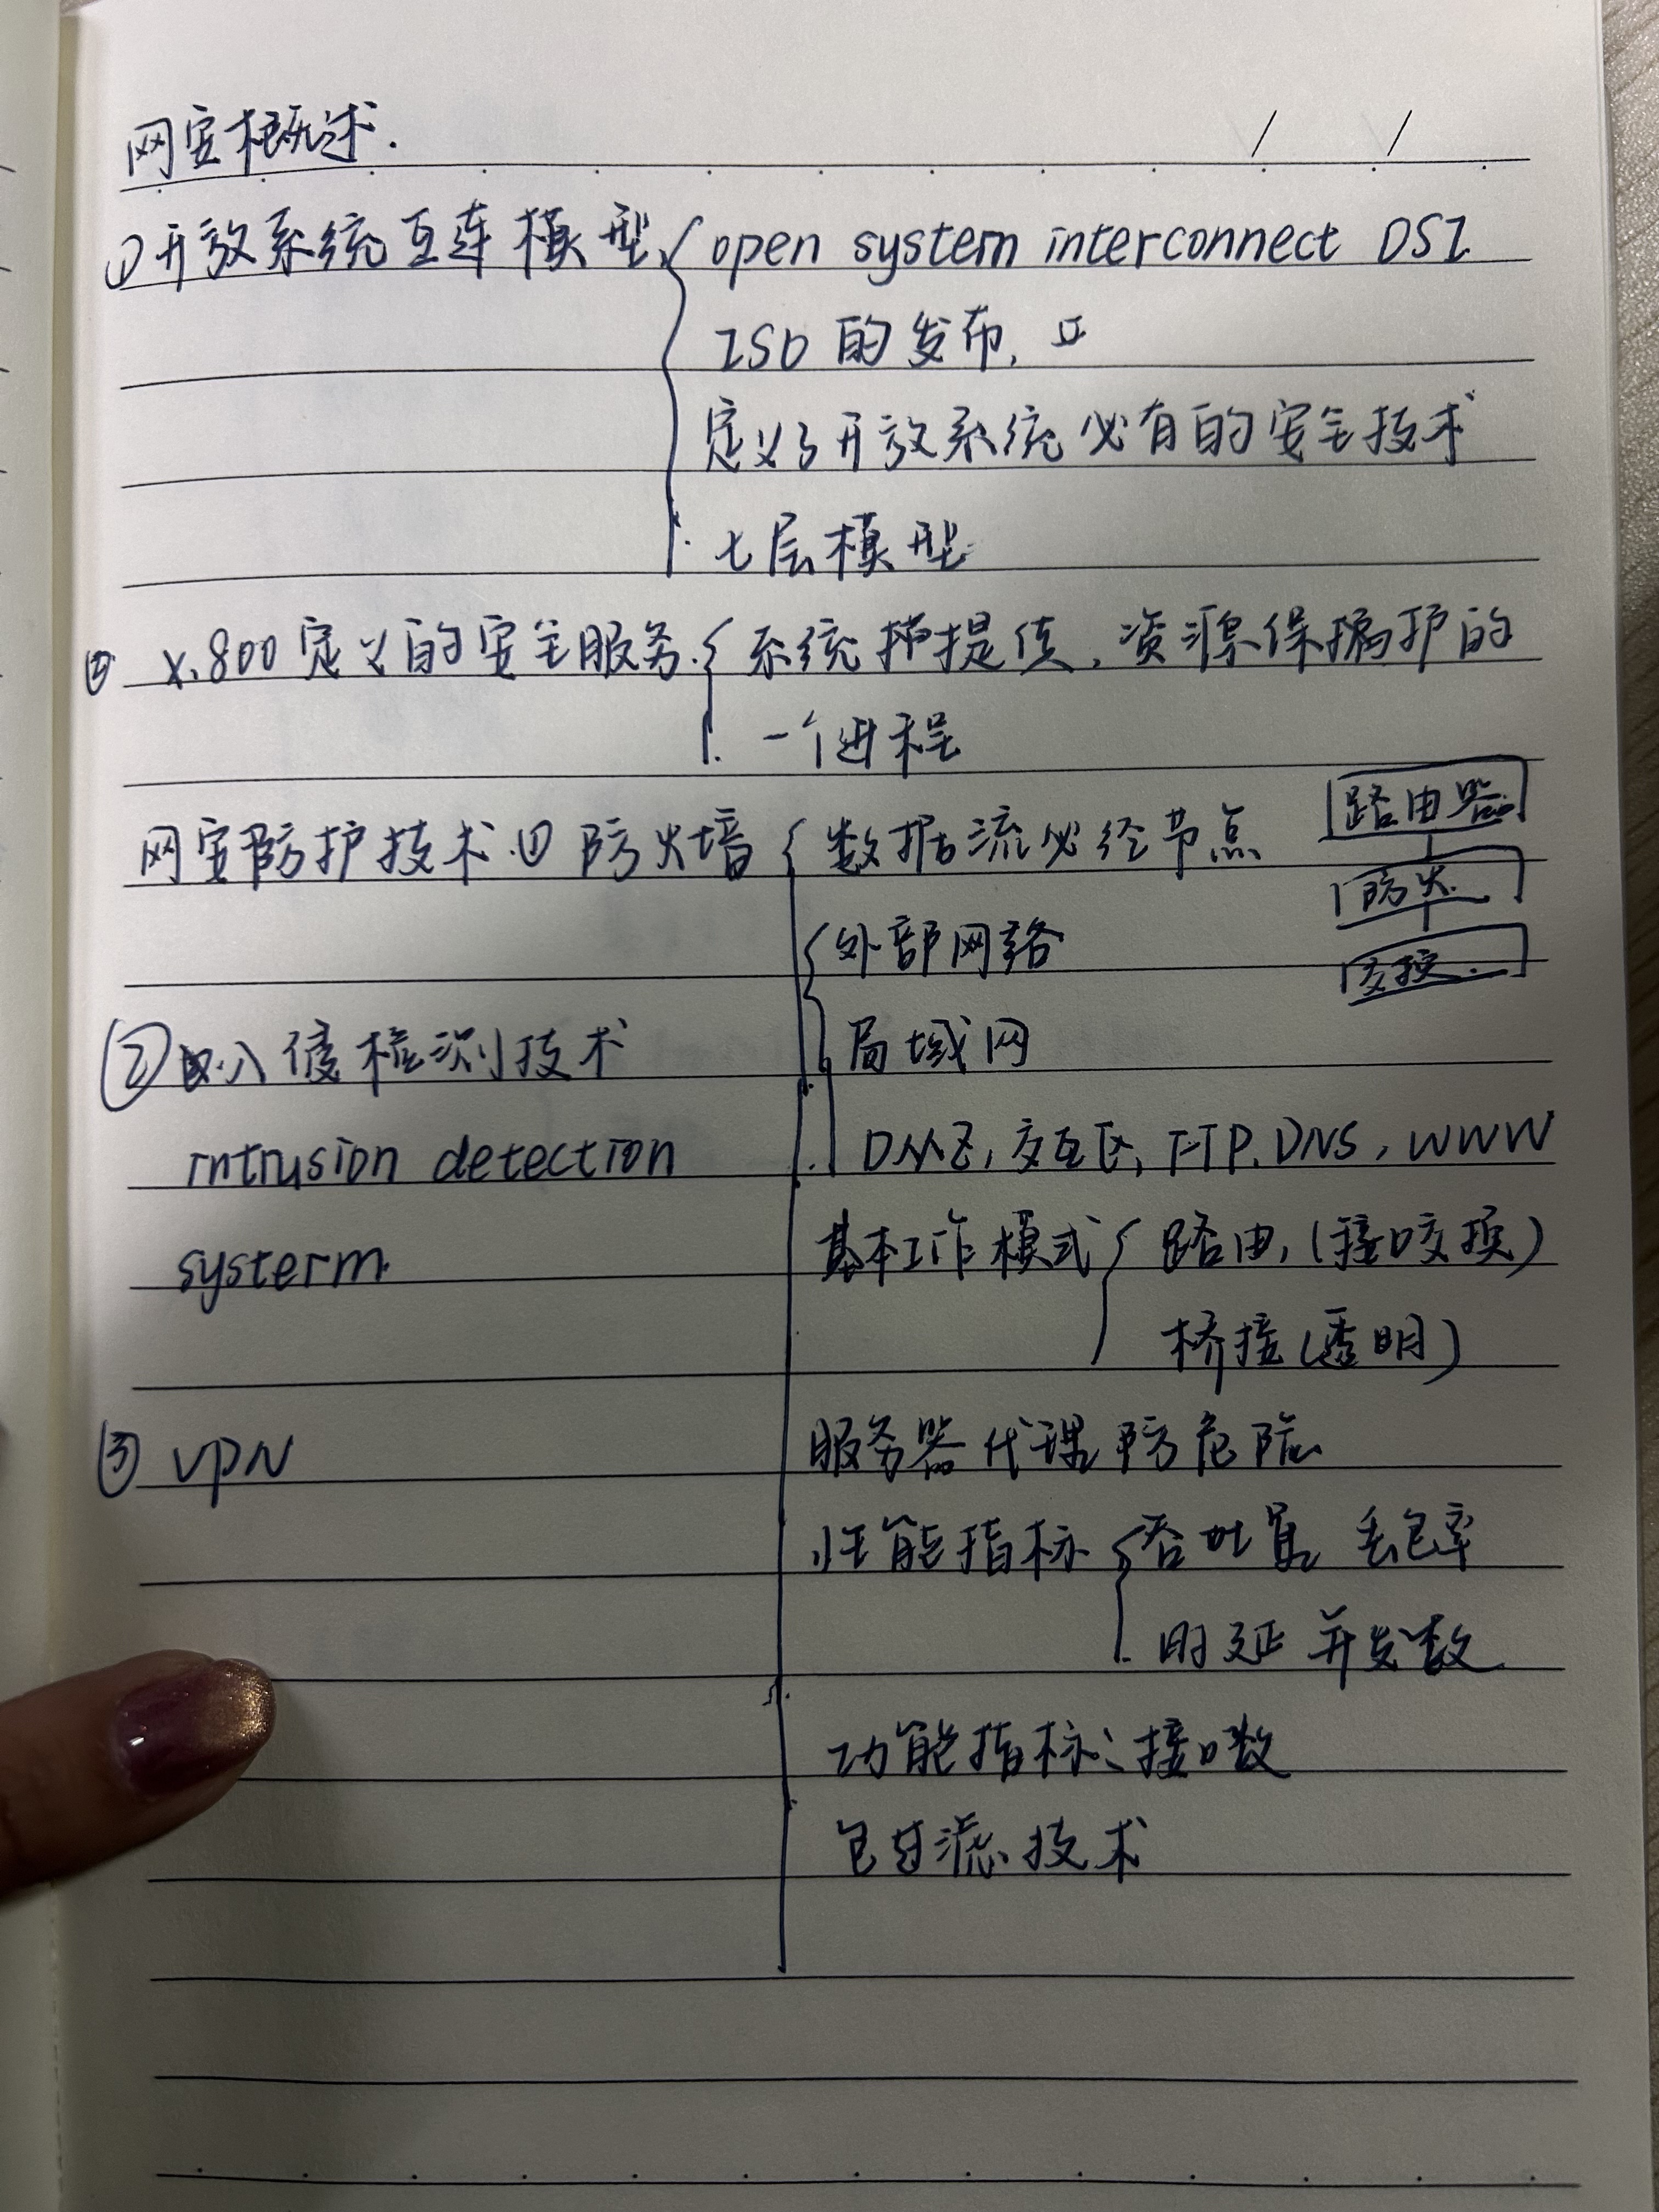 网安概述.
①开放系统互连模型 { open system interconnect OSI
ISO 的发布,
定义了开放系统必有的安全技术
七层模型
② X.800定义的安全服务. { 系统提供, 资源保护的
一个进程
网安防护技术.① 防火墙 { 数据流必经节点
路由器
防火.
交换.
外部网络
局域网
DMZ, 交互区, FTP. DNS, WWW
基本工作模式 { 路由, (接口交换)
桥接 (透明)
服务器代理 防危险
性能指标 { 吞吐量 丢包率
时延 并发数
功能指标: 接口数
包过滤技术
② 入侵检测技术
intrusion detection
systerm.
③ VPN